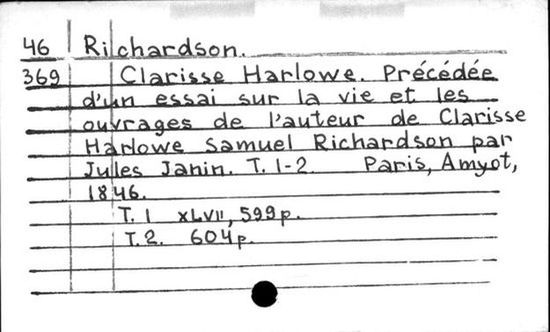 46 Richardson.
369 Clarisse Harlowe. Précédée
d'un essai sur la vie et les
ouvrages de l'auteur de Clarisse
Harlowe Samuel Richardson par
Jules Janin. T. 1-2 Paris, Amyot,
1846.
T. 1 XLVII, 599 p.
T. 2. 604 p.